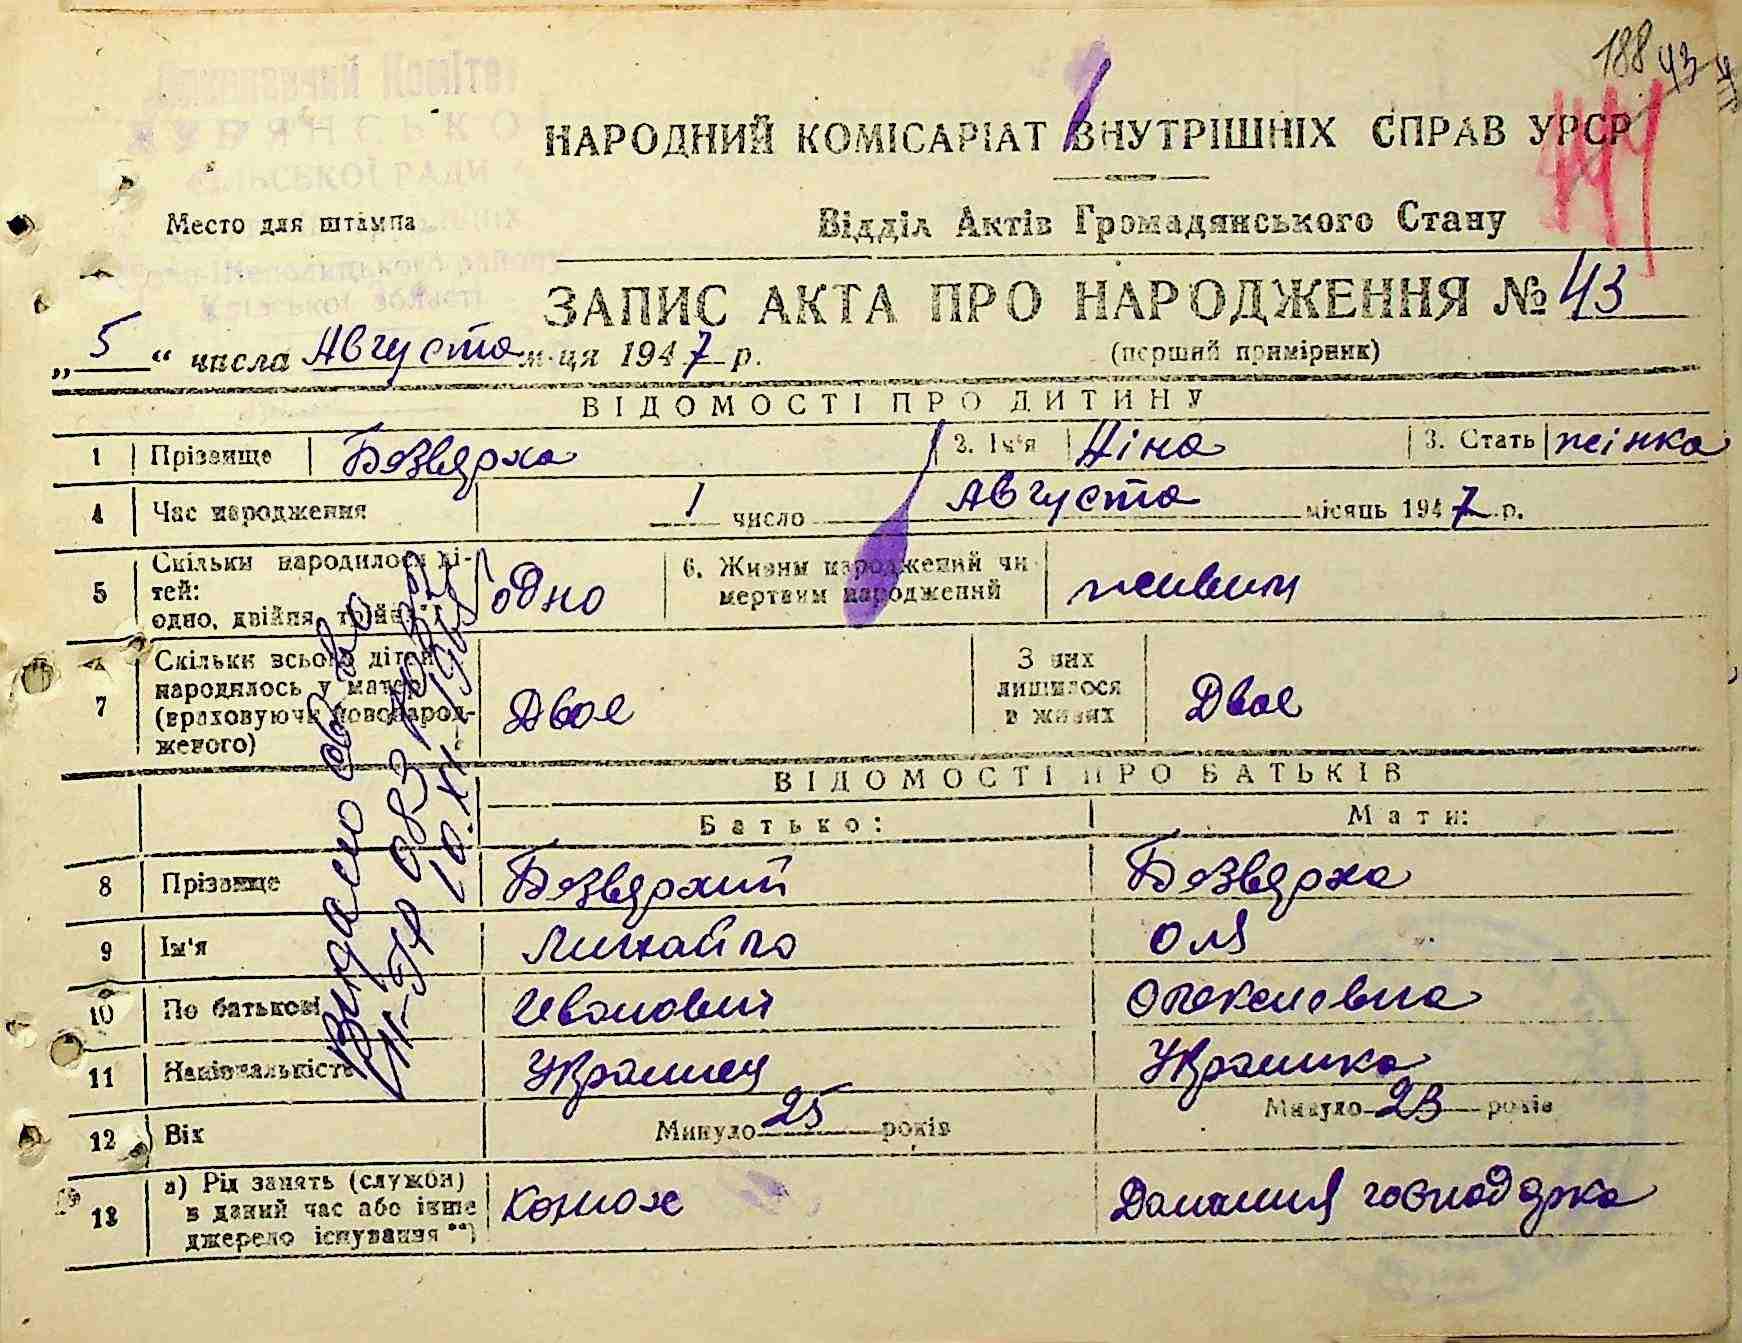 188 43
Виконавчий Комітет
ЛУБЯНСЬКО
СІЛЬСЬКОЇ РАДИ
НАРОДНИЙ КОМІСАРІАТ ВНУТРІШНІХ СПРАВ УРСР
Место для штампа
Відділ Актів Громадянського Стану
району
області
ЗАПИС АКТА ПРО НАРОДЖЕННЯ № 43
„5“ числа Августа м-ця 1947 р.
(перший примірник)
ВІДОМОСТІ ПРО ДИТИНУ
1 Прізвище Безверха 2. Ім'я Ніна 3. Стать жінка
4 Час народження 1 число Августа місяць 1947 р.
5 Скільки народилося ді-
тей:
одно, двійня, трійня*) одно
6. Живим народжений чи
мертвим народжений живим
7 Скільки всього дітей
народилось у матері
(враховуючи новонарод-
женого) Двоє
З них
лишилося
в живих Двоє
ВІДОМОСТІ ПРО БАТЬКІВ
Батько: Мати:
8 Прізвище Безверхий Безверха
9 Ім'я Михайло Оля
10 По батькові Іванович Олексієвна
11 Національність Українец Українка
12 Вік Минуло 25 років Минуло 23 років
13 а) Рід занять (служби)
в даний час або інше
джерело існування**) Конюх Домашня господарка
Видано